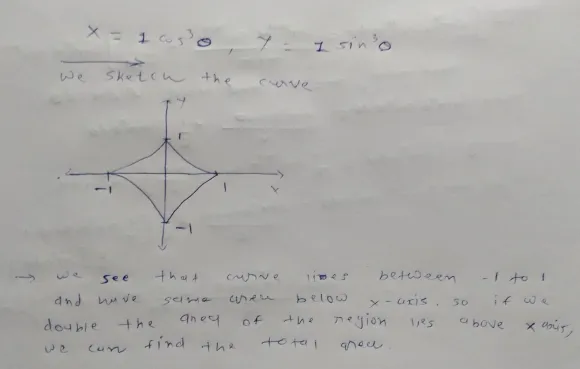 X = 1 cos³θ, Y = 1 sin³θ
We sketch the curve
Y
1
-1
1
X
-1
→ we see that curve lies between -1 to 1
and have same area below x-axis. so if we
double the area of the region lies above x axis,
we can find the total area